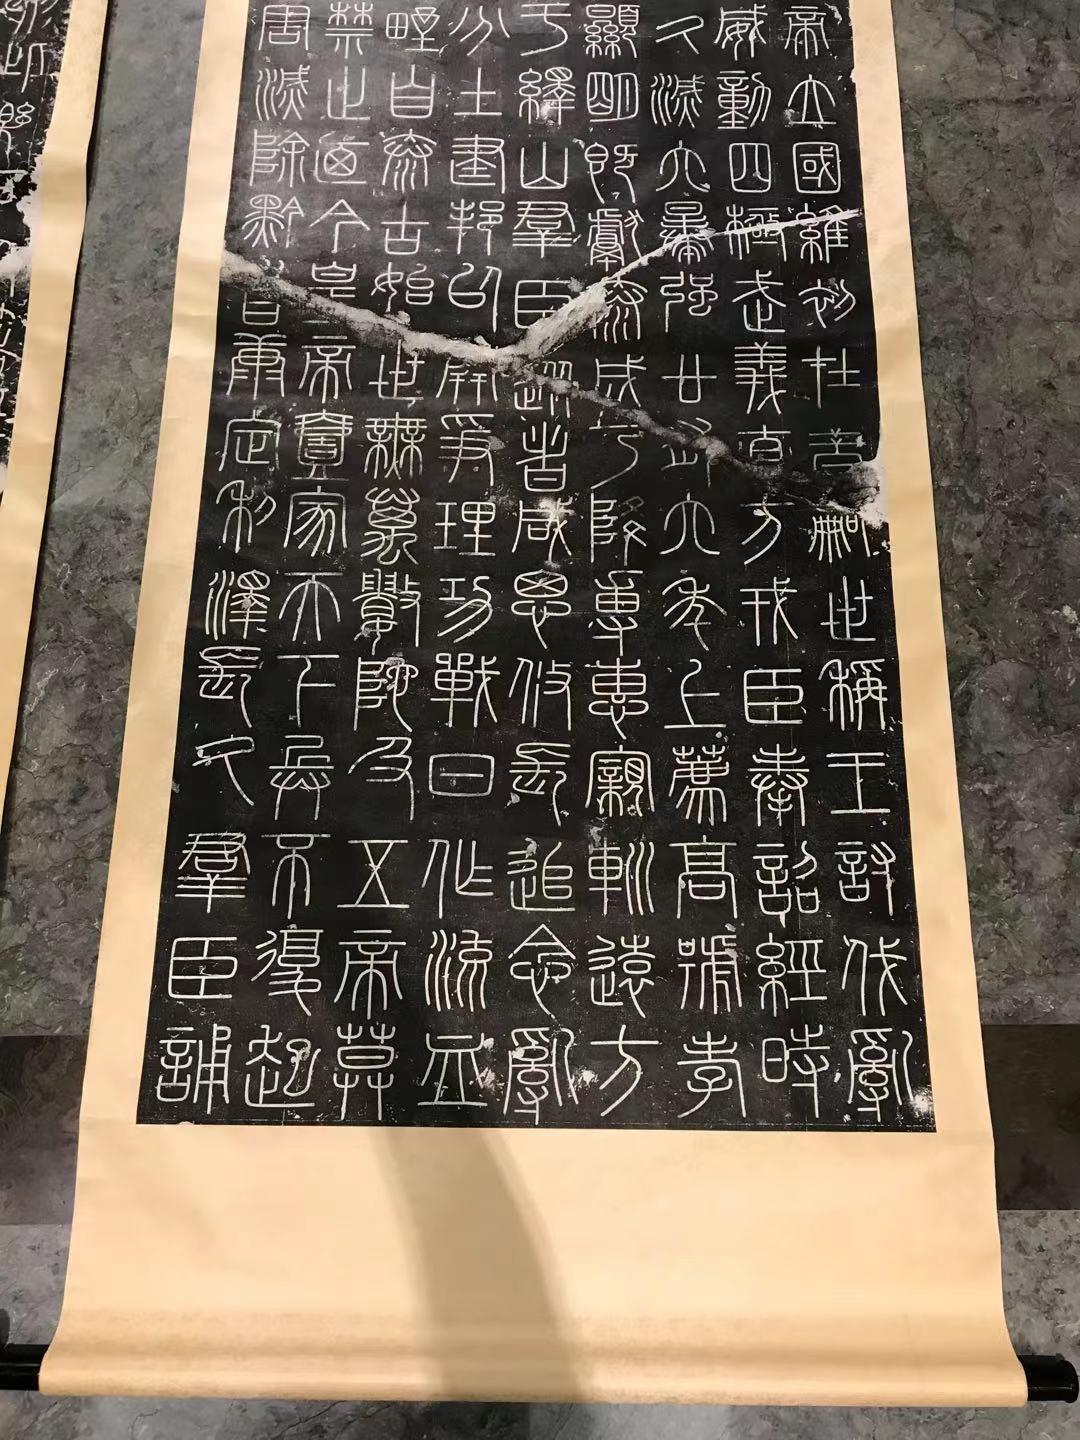 帝立國維初在昔嗣世稱王討伐亂
威動四極武義直方戎臣奉詔經時
久滅六暴強廿有六年上薦高號孝
顯明既獻泰成乃降專惠親巡遠方
于繹山羣臣從者咸思攸長追念亂
分土建邦以開爭理功戰日作流血
野自泰古始世無萬數陀及五帝莫
禁止廼今皇帝壹家天下兵不復起
害滅除黔首康定利澤長久羣臣誦